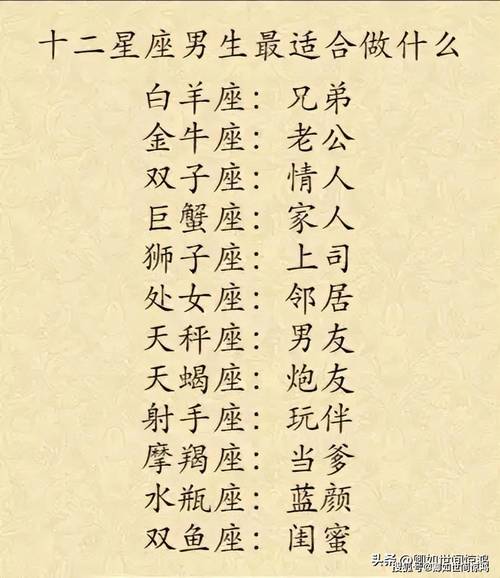 十二星座男生最适合做什么
白羊座：兄弟
金牛座：老公
双子座：情人
巨蟹座：家人
狮子座：上司
处女座：邻居
天秤座：男友
天蝎座：炮友
射手座：玩伴
摩羯座：当爹
水瓶座：蓝颜
双鱼座：闺蜜
头条 @卿如世间惊鸿
搜狐号@卿如世间惊鸿